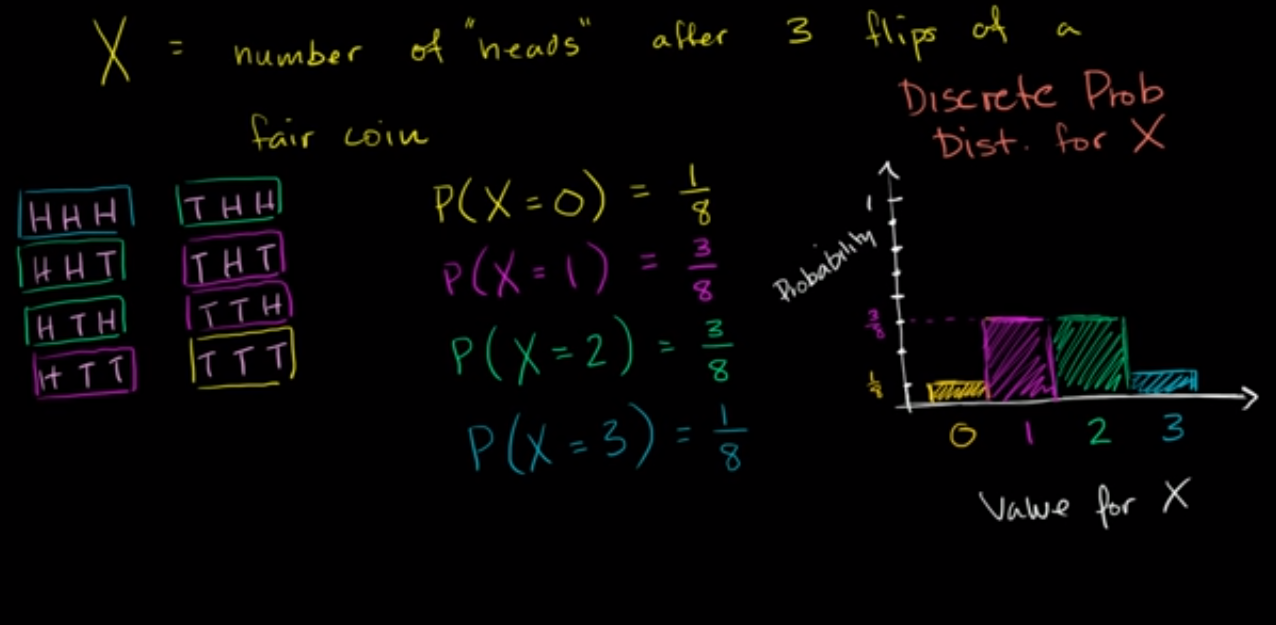 X = number of "heads" after 3 flips of a
fair coin
HHH
THH
HHT
THT
HTH
TTH
HTT
TTT
P(X=0) = 1/8
P(X=1) = 3/8
P(X=2) = 3/8
P(X=3) = 1/8
Discrete Prob
Dist. for X
Probability
1
3/8
1/8
0 1 2 3
Value for X